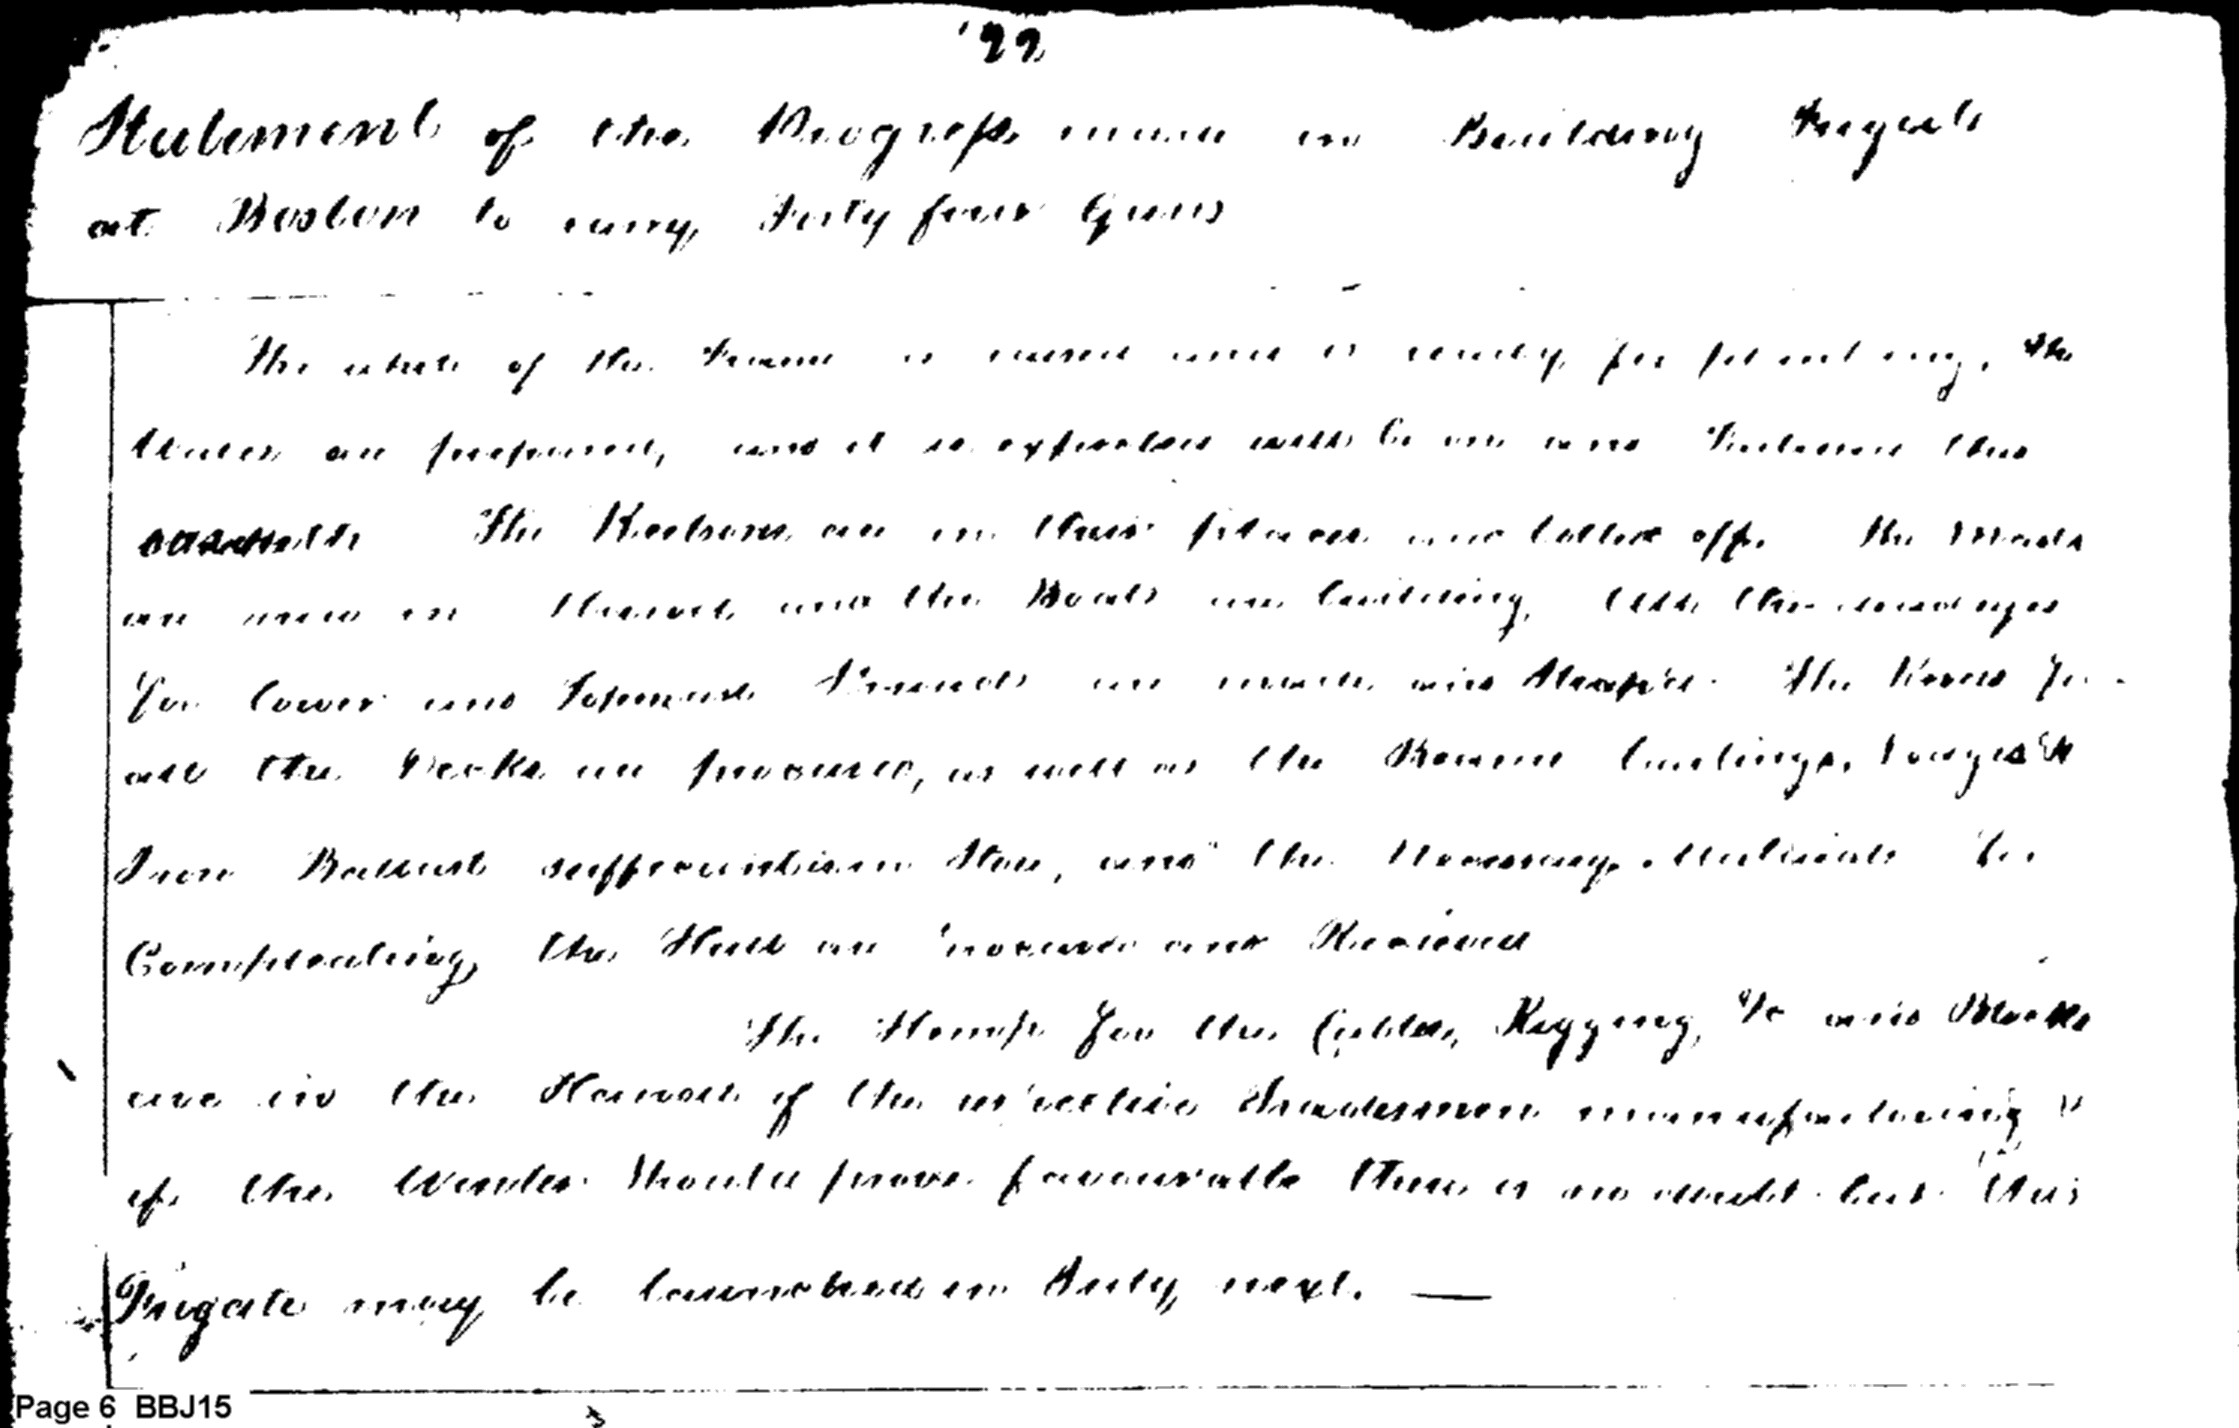 '22
Statement of the Progress made in Building Frigate
at Boston to carry Forty four Guns
The whole of the Frame is raised and is ready for planking, the
Wales are prepared, and it is expected will be on and fastened this
The Keelsons are in their places and bolted off. The Masts
are now in Hand and the Boats are building. All the deadeyes
for lower and Topmast Shrouds are made and Strap'd. The Knees for
all the Decks are procured, as well as the Beams Carlings, Ledges &c
Iron Ballast sufficient is in Store, and the Necessary Materials for
Compleating the Hull are procured and Recieved
The Hemp for the Cables, Rigging, &c and Blocks
are in the Hands of the respective Tradesmen manufacturing &
if the Winter Should prove favourable there is no doubt but this
Frigate may be launched in July next. —
Page 6 BBJ15